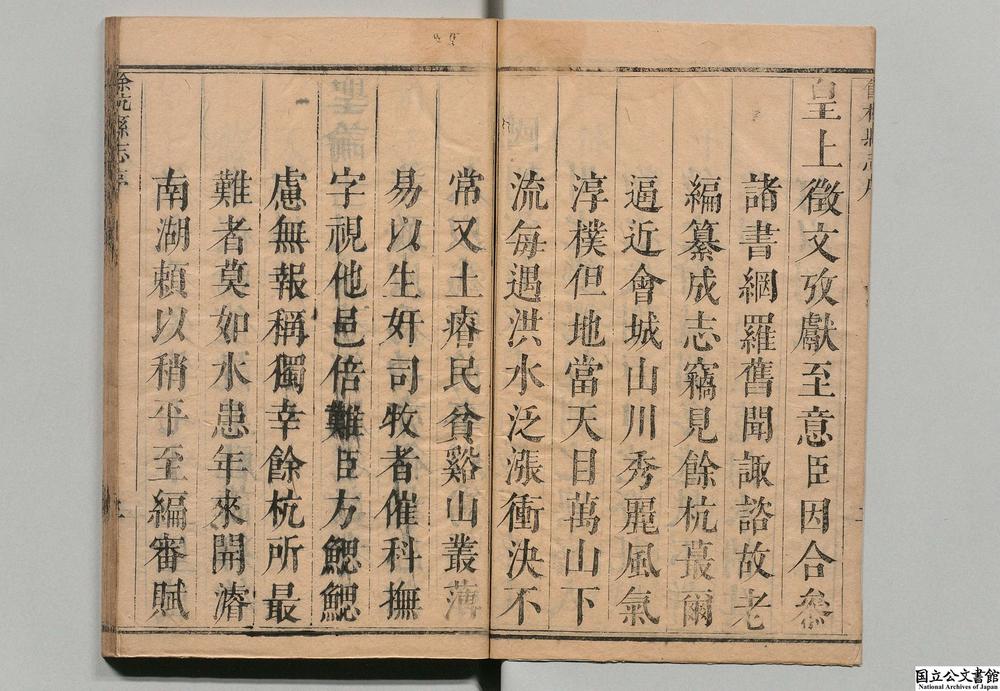 皇上徵文攷獻至意臣因合叅
諸書網羅舊聞諏諮故老
編纂成志竊見餘杭蕞爾
逼近會城山川秀麗風氣
淳樸但地當天目萬山下
流每遇洪水泛漲衝決不
常又土瘠民貧谿山叢薄
易以生奸司牧者催科撫
字視他邑倍難臣方鰓鰓
慮無報稱獨幸餘杭所最
難者莫如水患年來開濬
南湖頼以稍平至編審賦
餘杭縣志序
国立公文書館
National Archives of Japan